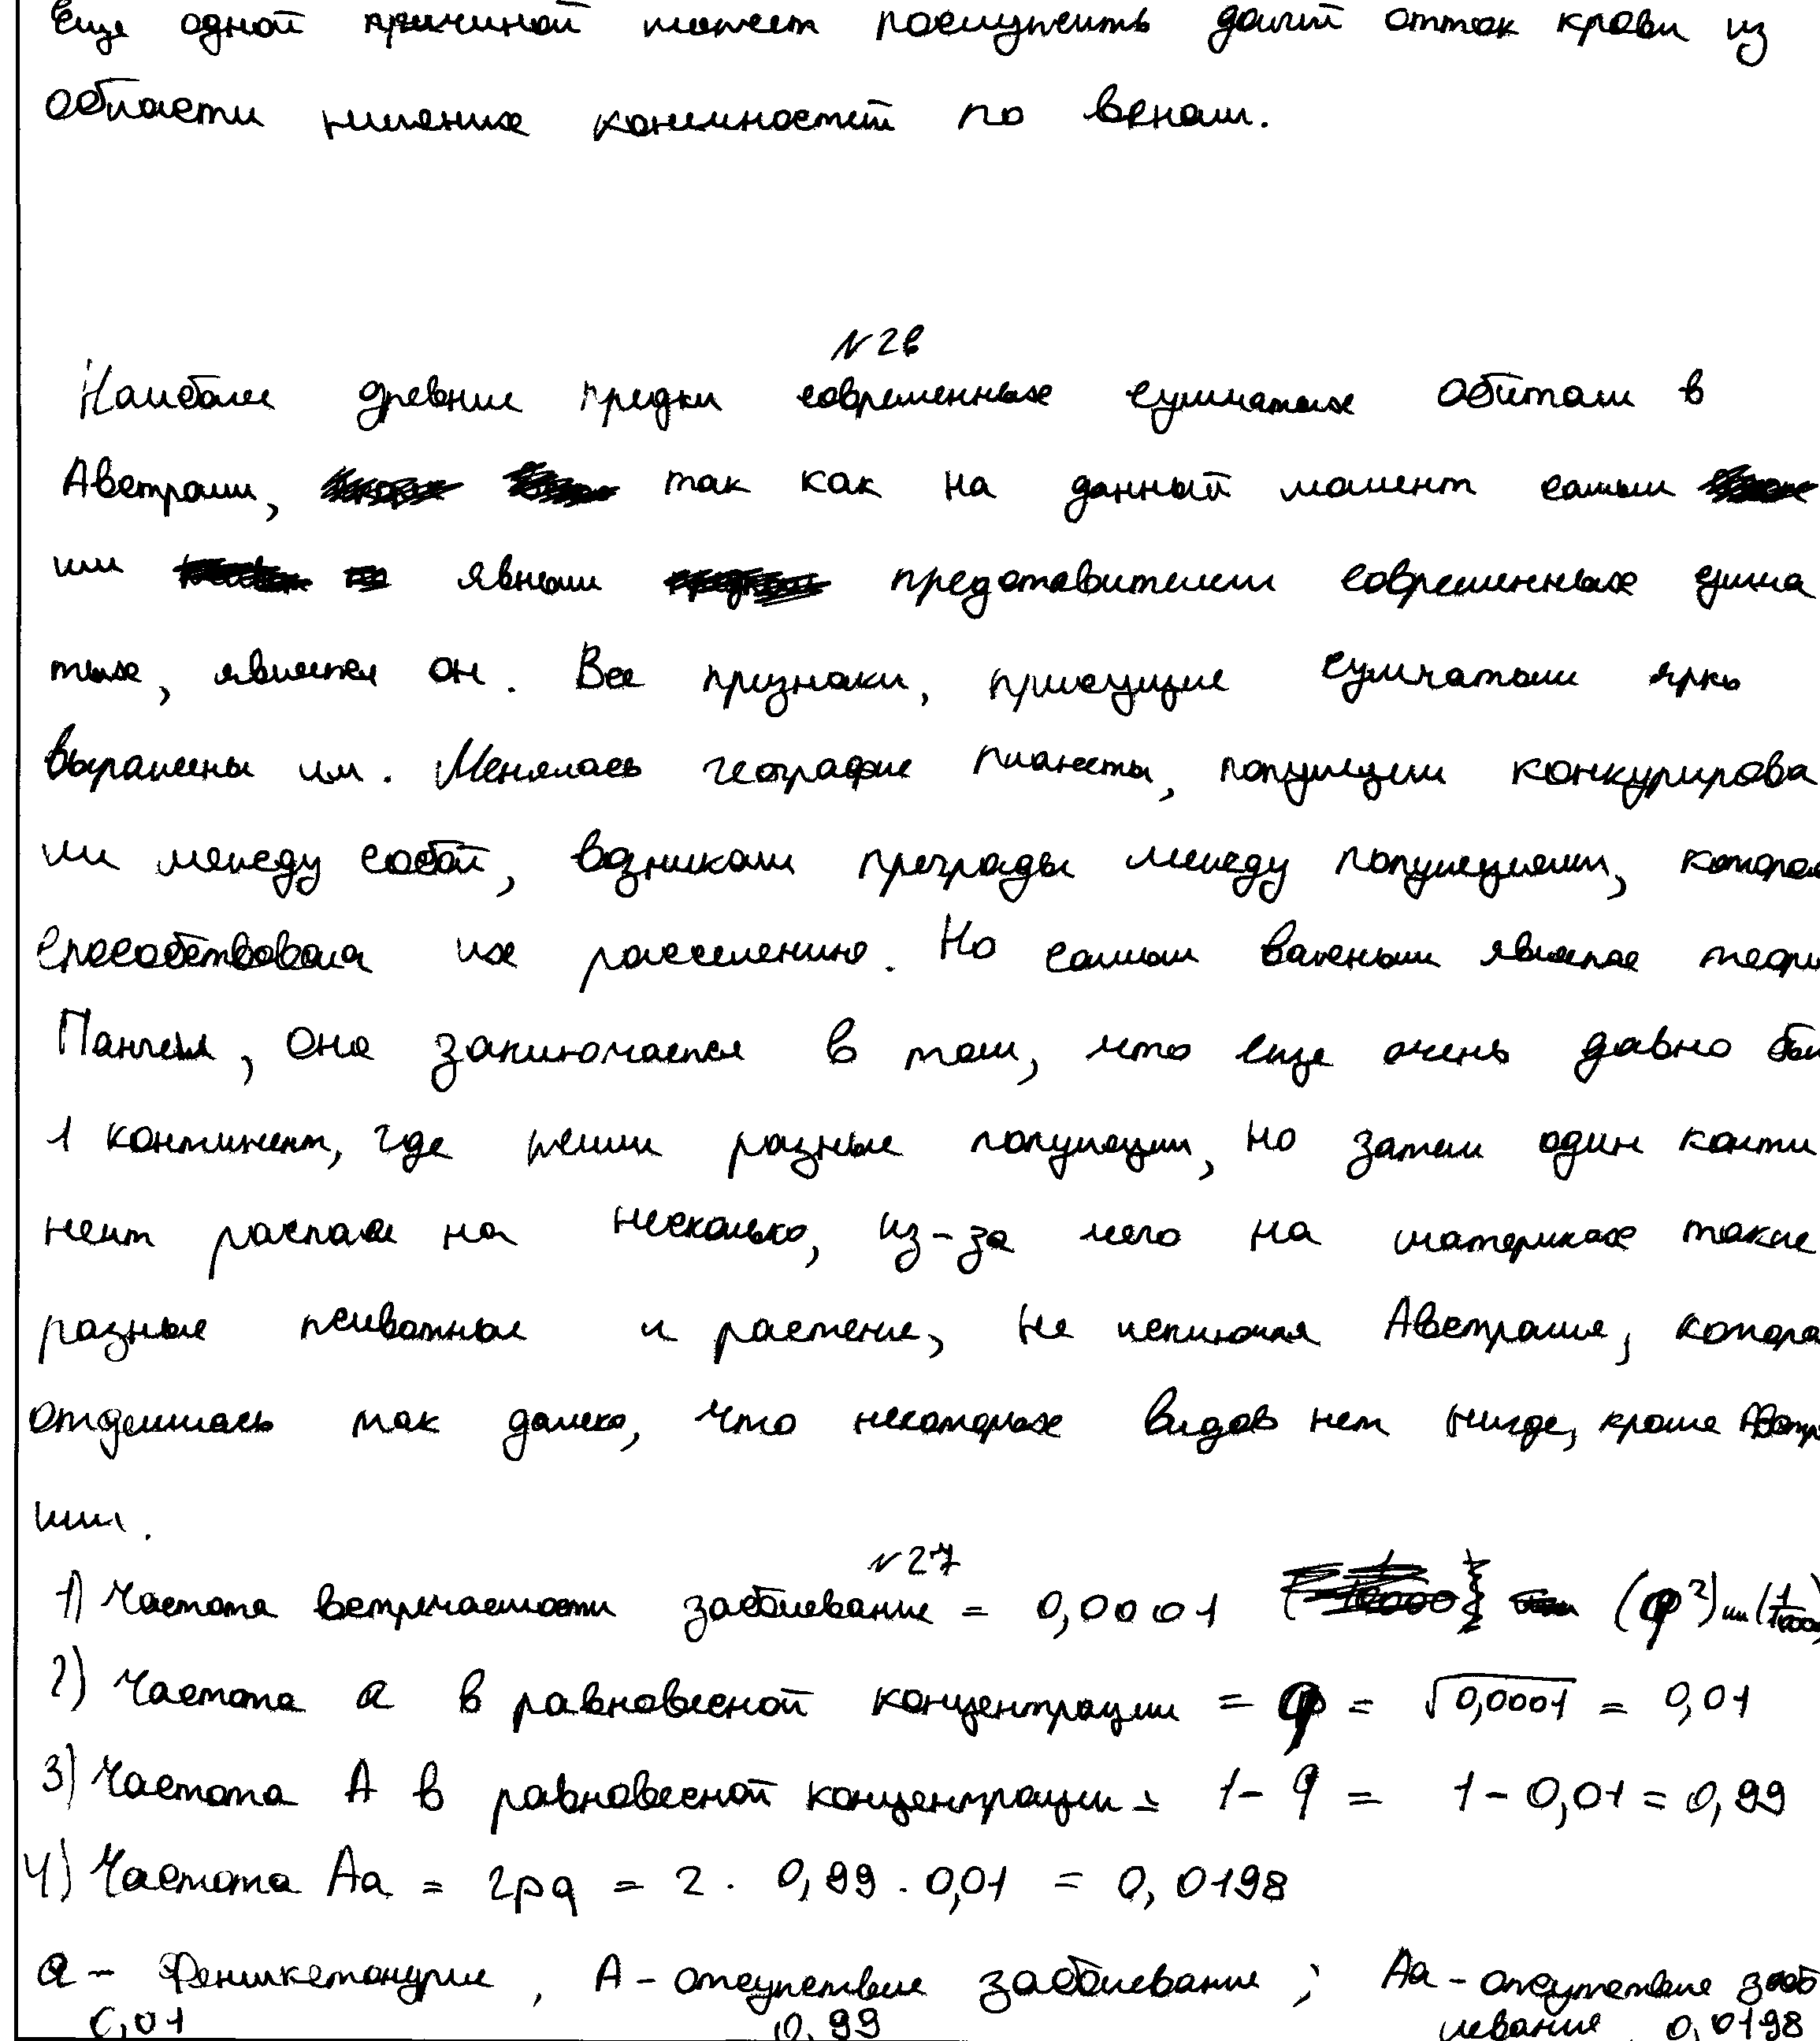 Еще одной причиной может послужить долгий отток крови из
области нижних конечностей по венам.
№26
Наиболее древние предки современных сумчатых обитали в
Австралии, так как на данный момент самым
или явным представителем современных сумча
тых, является он. Все признаки, присущие сумчатым ярко
выражены им. Менялась география планеты, популяции конкурирова
ли между собой, возникали преграды между популяциями, которые
способствовала их расселению. Но самым важным является теория
Пангеи, она заключается в том, что еще очень давно был
1 континент, где жили разные популяции, но затем один конти
нент распался на несколько, из-за чего на материках такие
разные животные и растение, не исключая Австралия, которая
отделилась так далеко, что некоторых видов нет нигде, кроме Австра
лии.
№27
1) Частота встречаемости заболевание = 0,0001 (q²) или (1/10000)
2) Частота a в равновесной концентрации = q = √0,0001 = 0,01
3) Частота A в равновесной концентрации = 1 - q = 1 - 0,01 = 0,99
4) Частота Aa = 2pq = 2 · 0,99 · 0,01 = 0,0198
a - Фенилкетонурие, A - отсутствие заболевание; Aa - отсутствие забо
0,01 0,99 левание 0,0198